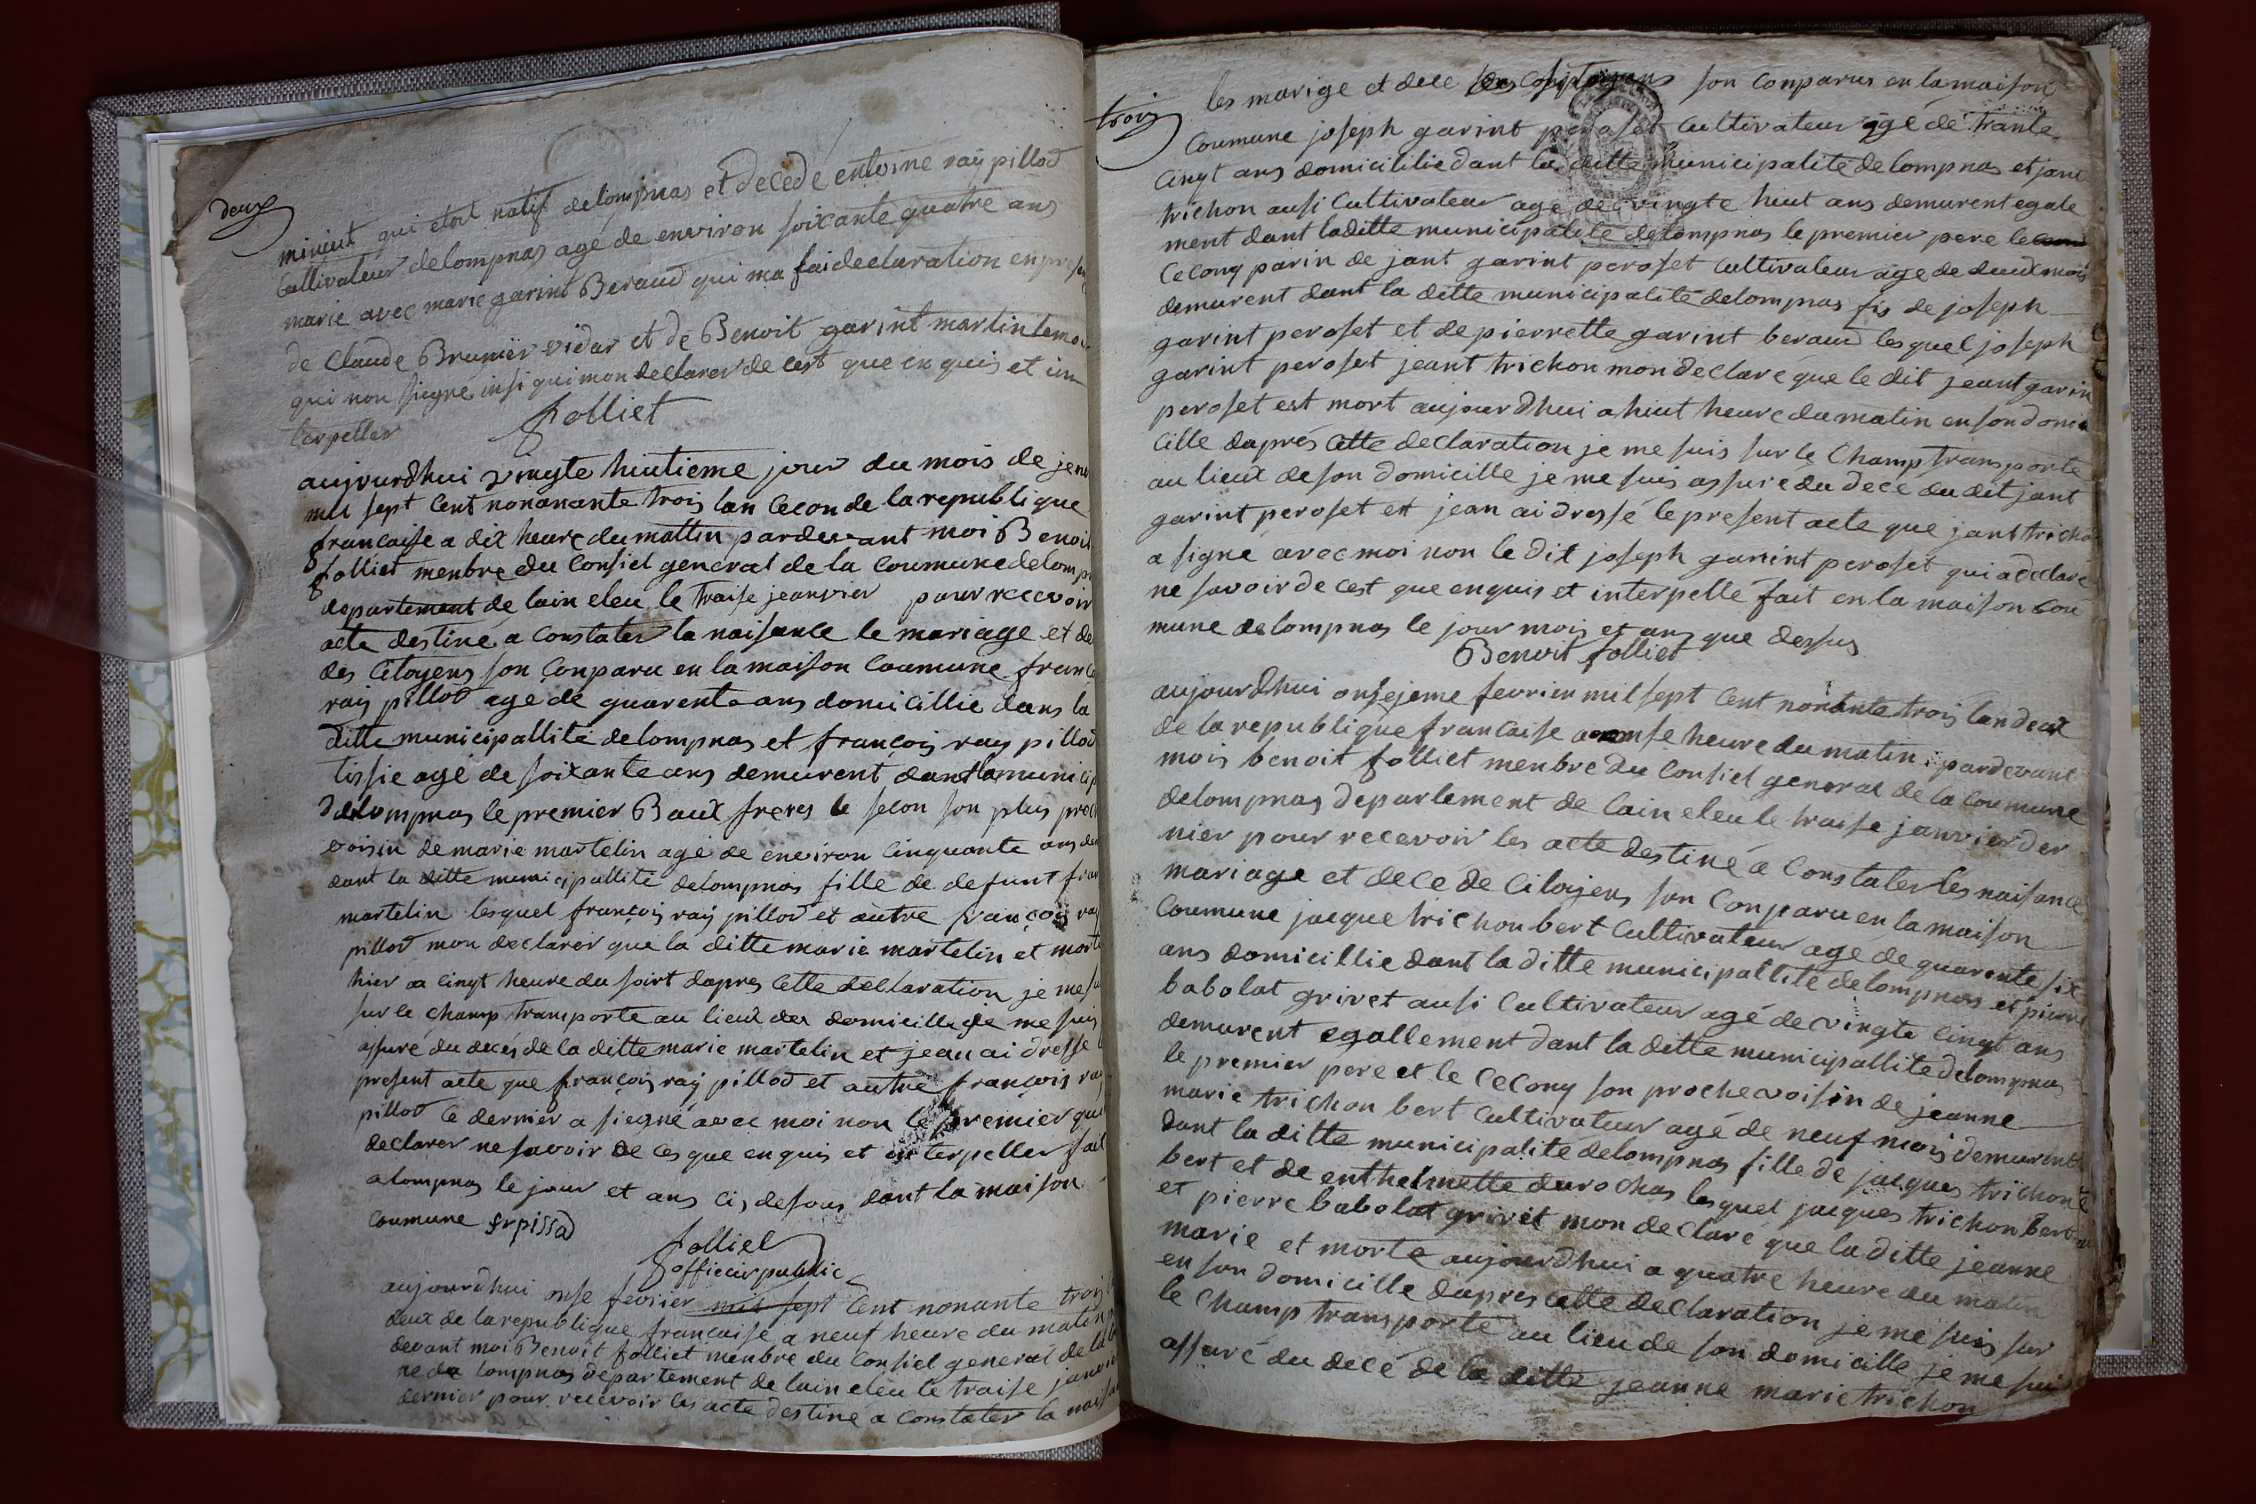 deux
minieut qui etoit natif delompnas et decede entoine raÿ pillod
Cultivateur delompnas age de environ soixante quatre ans
marie avec marie garint Beraud qui ma fai declaration en pres
de Claude Brunier vidar et de Benoit garint martin temo
qui non signe insi qui mon declarer de cest que en quis et in
terpeller
folliet
aujourdhui vingte huitieme jour du mois de jen
mil sept Cent nonanante trois lan Cecon de la republique
francaise a dix heure du mattin pardevant moi Benoit
folliet menbre du Consiel general de la Coumune delomp
departement de lain eleu le Traise jeanvier pour recevoir
acte destine a Constater la naisance le mariage et de
des Citoyens son Conparu en la maison Coumune franco
raÿ pillod age de quarente ans domicillie dans la
ditte municipallité delompnas et françois ray pillod
tissie agé de soixante ans demurent dant la munici
delompnas le premier Baux freres le secon son plus proc
voisin de marie martelin age de environ Cinquante ans de
dant la ditte municipallité delompnas fille de defunt fran
martelin lesquel françois raÿ pillod et autre françois ray
pillod mon declarer que la ditte marie martelin et morte
hier a Cinqt heure du soirt dapres Cette declaration je me su
sur le Champ transporte au lieux der domicille je me suis
assuré du deces de la ditte marie martelin et jean ai dresse
present acte que françois raÿ pillod et autre françois ray
pillod Ce dernier a siegné avec moi non le premier qui
declarer ne savoir de Ces que enquis et interpeller fait
a lompnas le jour et ans Ci desous dant la maison
Coumune frpissd
folliet
officier public
aujourdhui onse fevrier mil sept Cent nonante trois
deux de la republique francaise a neuf heure du matin
devant moi Benoit folliet menbre du Consiel general de la
ne de lompnas departement de lain eleu le traise janvie
dernier pour recevoir les acte destine a Constater la nais
trois
les marige et dece des Citoiyens son Conparus en la maison
Coumune joseph garint peroset Cultivateur age de Trante
Cinqt ans domicilie dant la ditte municipalité de lompnas et jant
trichon ausi Cultivateur age de vingte huit ans demurent egale
ment dant la ditte municipalité delompnas le premier pere le
Cecong parin de jant garint peroset Cultivateur age de deux mois
demurent dant la ditte municipalité delompnas fis de joseph
garint peroset et de pierrette garint beraud lesquel joseph
garint peroset jeant trichon mon declare que le dit jeant garin
peroset est mort aujourdhui a huit heure du matin en son domi
cille daprés Cette declaration je me suis sur le Champ transporte
au lieux de son domicille je me suis assuré du decé du dit jant
garint peroset et jean ai dressé le present acte que jant tricho
a signé avec moi non le dit joseph garint peroset qui a declaré
ne savoir de cest que enquis et interpellé fait en la maison Cou
mune delompnas le jour mois et ans que dessus
Benoit folliet
aujourdhui onsejeme fevrier mil sept Cent nonante trois lan deux
de la republique francaise a onse heure du matin pardevant
mois benoit folliet menbre du Consiel general de la Coumune
delompnas departement de lain eleu le traise janvier der
nier pour recevoir les acte destiné a Constater les naisance
mariage et dece de Citoyens son Conparu en la maison
Coumune jacque trichon bert Cultivateur age de quarente six
ans domicillie dant la ditte municipallité delompnas et pierre
babolat grivet ausi Cultivateur agé de vingte Cinqt ans
demurent egallement dant la ditte municipallité delompnas
le premier pere et le Cecong son proche voisin de jeanne
marie trichon bert Cultivateur agé de neuf mois demurent
dant la ditte municipalité delompnas fille de jacques trichon
bert et de enthelmette durochas lesquel jacques trichon Bert
et pierre babolat grivet mon declaré que la ditte jeanne
marie et morte aujourdhui a quatre heure du matin
en son domicille dapres Cette declaration je me suis sur
le Champ transporté au lieu de son domicille je me suis
assuré du decé de la ditte jeanne marie trichon